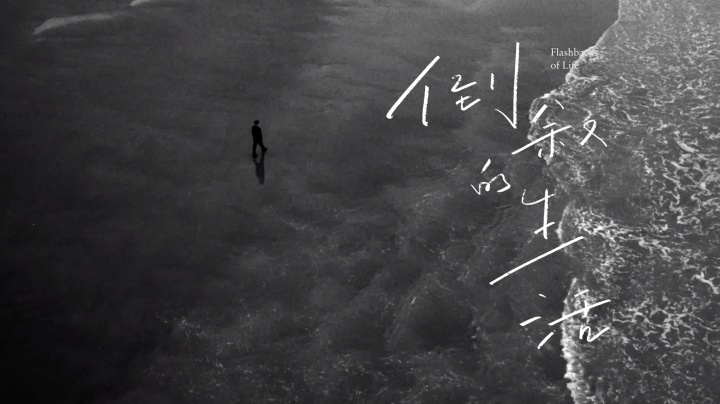 倒
敘
的
生
活
Flashbacks
of Life